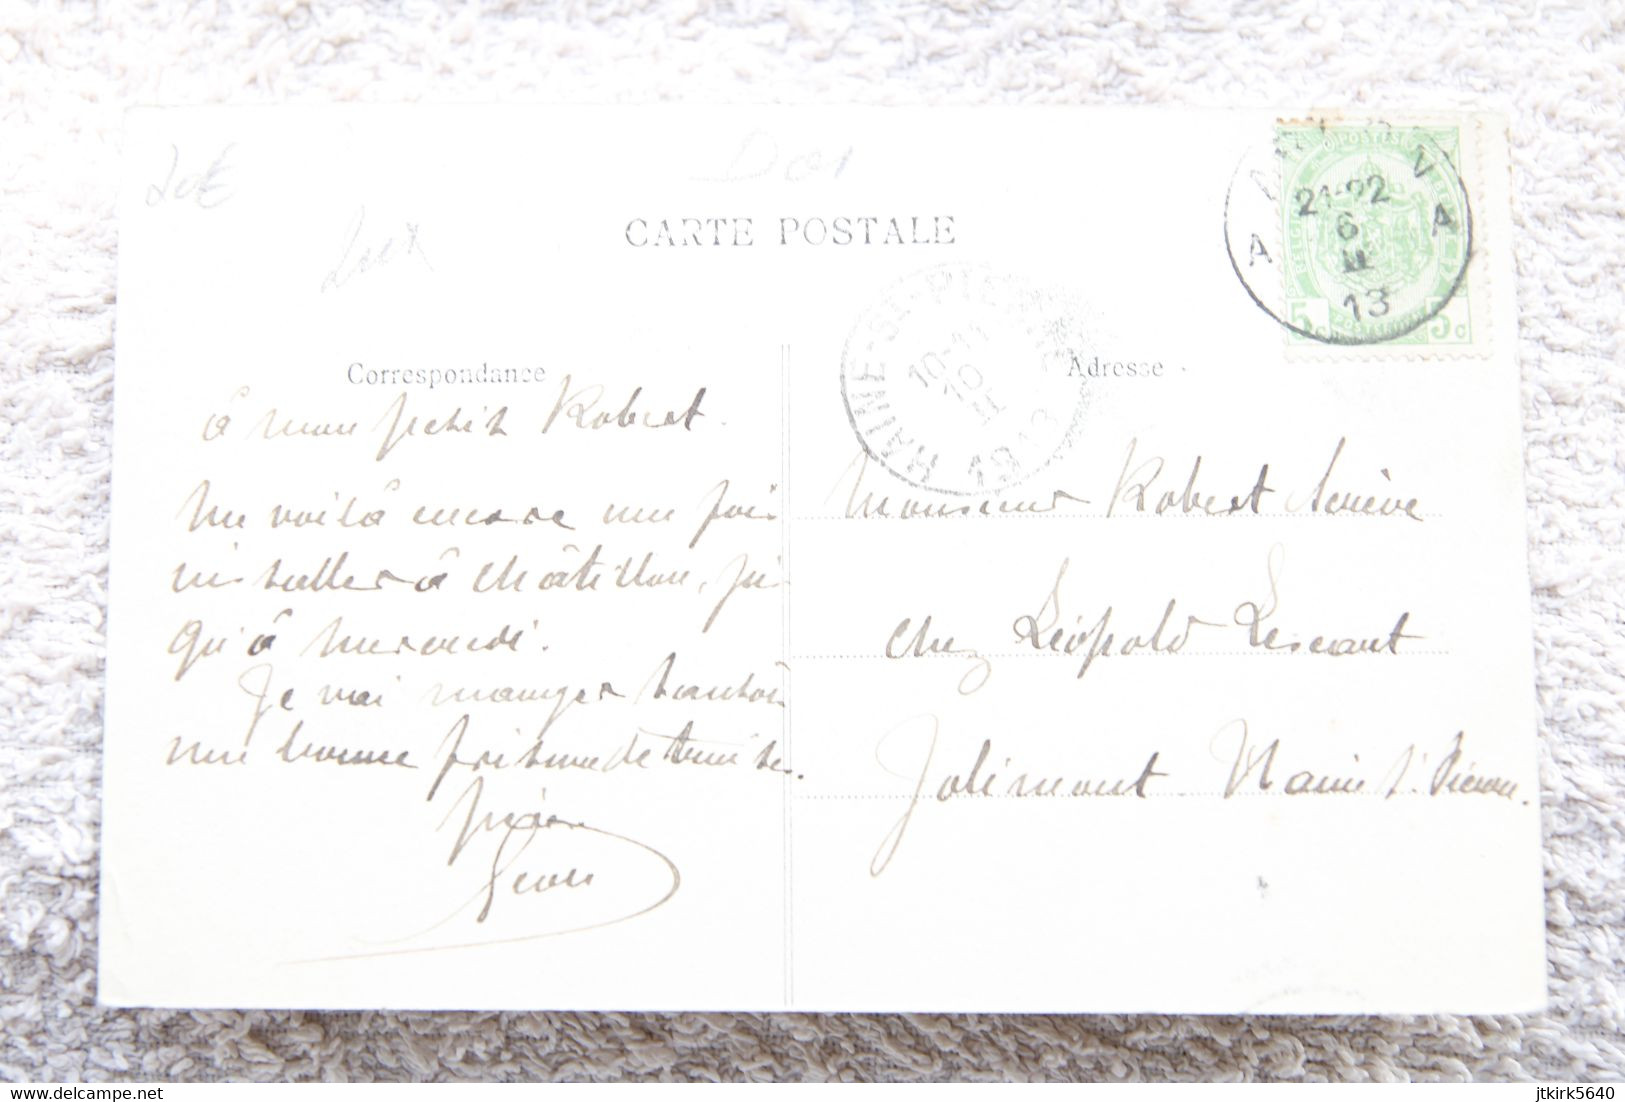 20€
Lux
CARTE POSTALE
21-22
6
II
13
A
V
A
POSTES
5c
5c
HAINE-ST-PIE
10-11
10
II
1913
Correspondance
Adresse
à mon petit Robert.
Me voilà encore une fois
installer à Châtillon, jus
qu'à mercredi.
Je vai manger tantôt
une bonne friture de truites.
Léon
Monsieur Robert
chez Léopold Lescaut
Jolimont. Haine St. Pierre.
www.delcampe.net
jtkirk5640